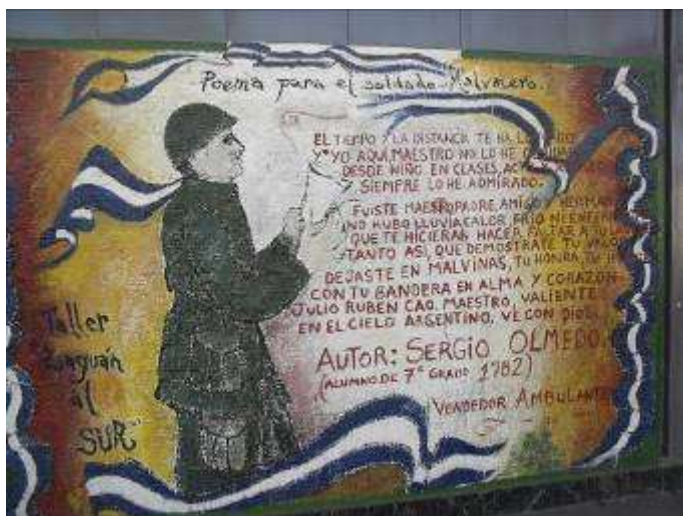 Poema para el soldado Malvinero.
EL TIEMPO Y LA DISTANCIA TE HA
Y YO AQUI, MAESTRO NO LO HE
DESDE NIÑO EN CLASES,
SIEMPRE LO HE ADMIRADO.
FUISTE MAESTRO, PADRE, AMIGO Y
NO HUBO LLUVIA, CALOR, FRIO NI
QUE TE HICIERAN HACER FALTAR A TU
TANTO ASI, QUE DEMOSTRATE TU
DEJASTE EN MALVINAS, TU HONRA, TU
CON TU BANDERA EN ALMA Y CORAZON
JULIO RUBEN CAO, MAESTRO, VALIENTE
EN EL CIELO ARGENTINO, VE CON DIOS.
AUTOR: SERGIO OLMEDO.
(ALUMNO DE 7° GRADO 1982)
VENDEDOR AMBULANTE
Taller
"Zaguán
al
SUR"